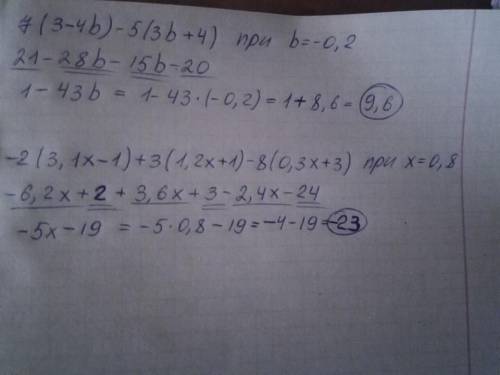 7(3-4b)-5(3b+4) при b=-0,2
21-28b-15b-20
1-43b = 1-43·(-0,2)=1+8,6=9,6
-2(3,1x-1)+3(1,2x+1)-8(0,3x+3) при x=0,8
-6,2x+2+3,6x+3-2,4x-24
-5x-19 = -5·0,8-19=-4-19=-23